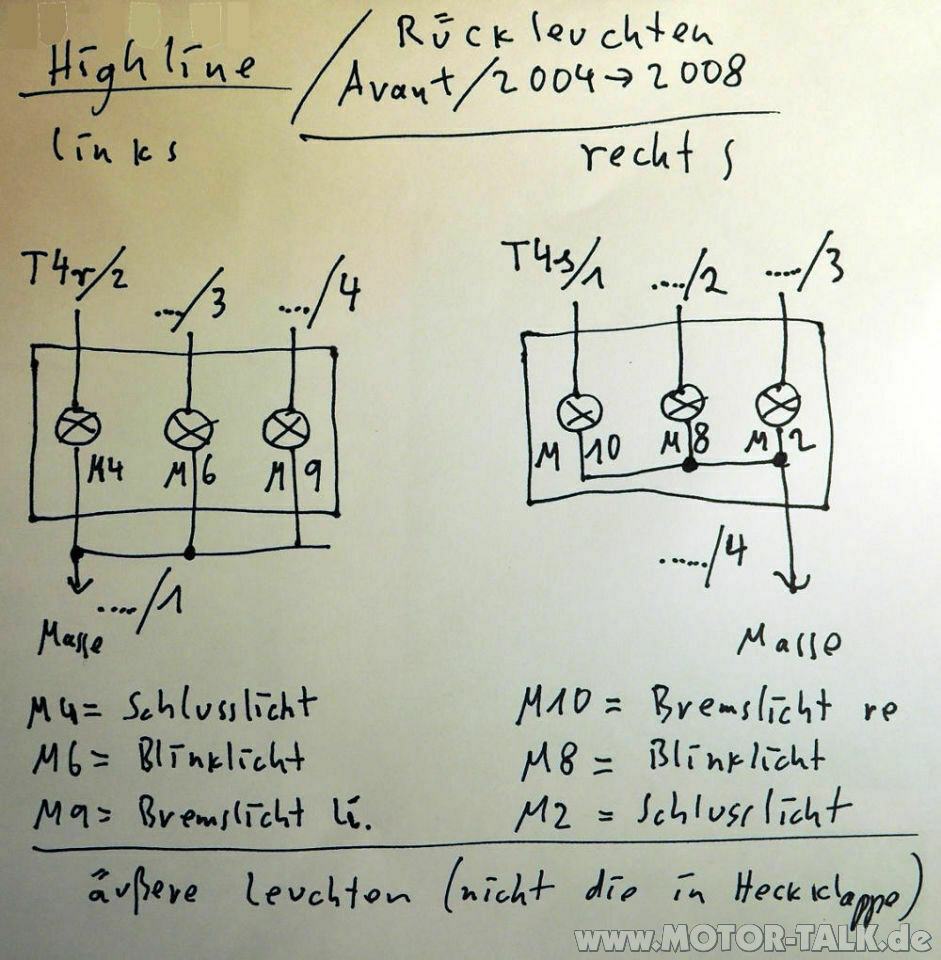 Highline / Rückleuchten
Avant/2004→2008
links rechts
T4r/2 ..../3 ..../4
T4s/1 ..../2 ...../3
M4 M6 M9
M10 M8 M2
..../1
...../4
Masse Masse
M4= Schlusslicht
M6= Blinklicht
M9= Bremslicht li.
M10 = Bremslicht re
M8 = Blinklicht
M2 = Schlusslicht
äußere leuchten (nicht die in Heckklappe)
www.MOTOR-TALK.de